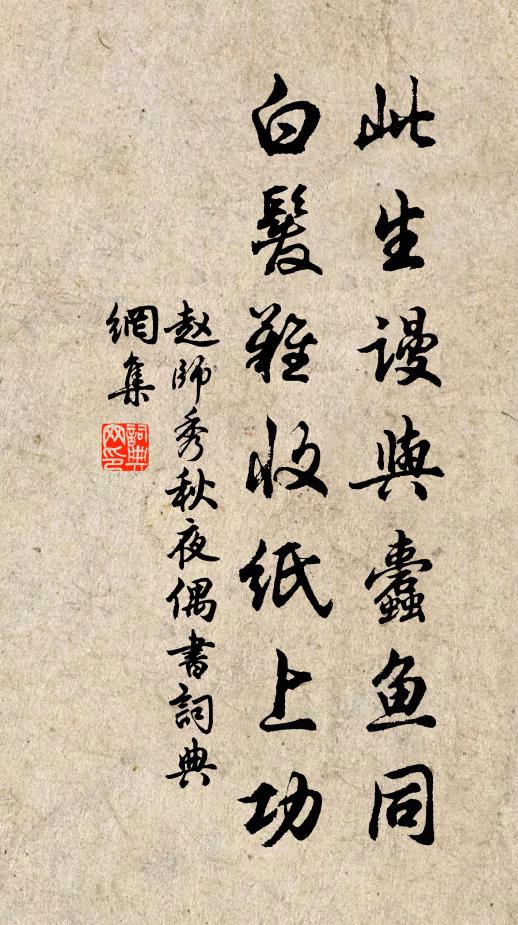 此生謾與蠹魚同
白髮難收紙上功
赵師秀秋夜偶書詞典
網集
詞典
网印